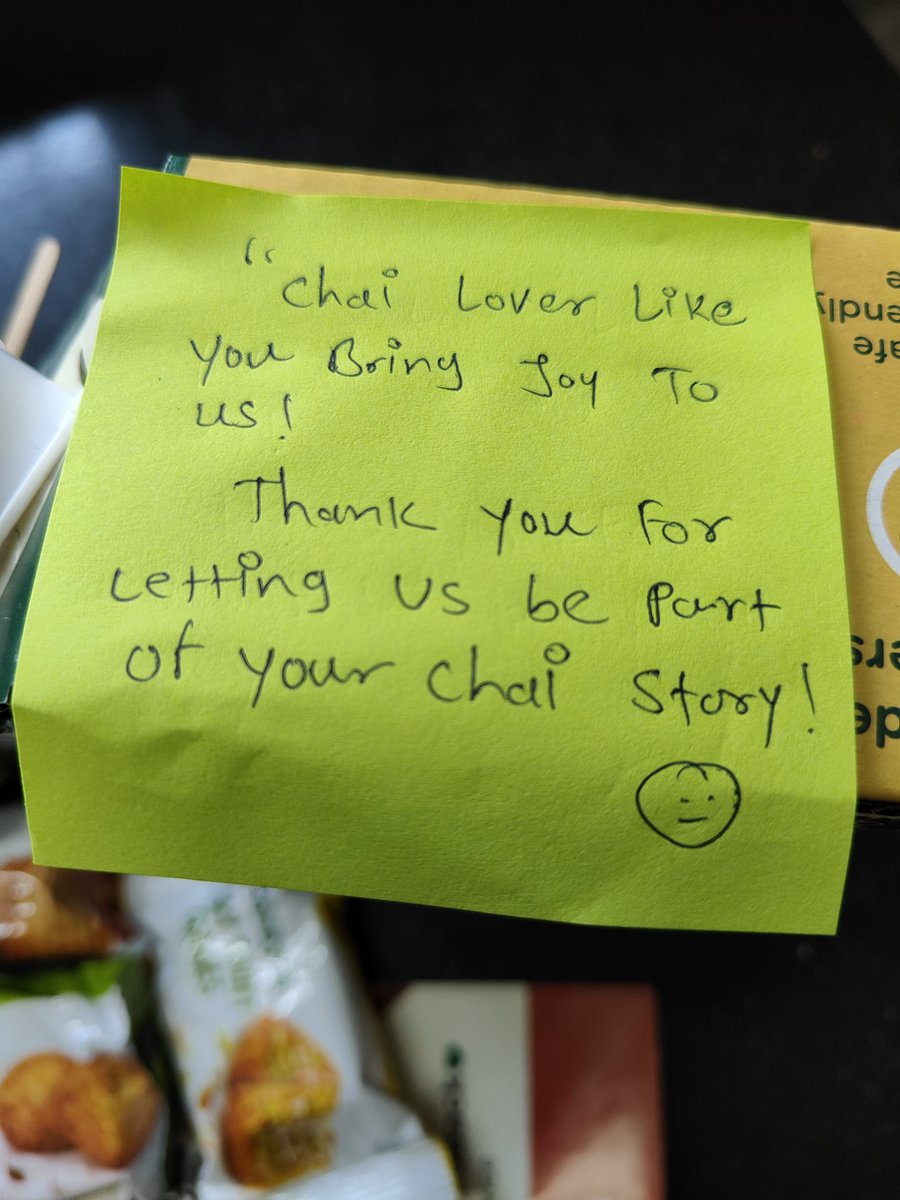 “Chai Lover Like
You Bring Joy To
us!
Thank you For
Letting us be Part
of your Chai Story!